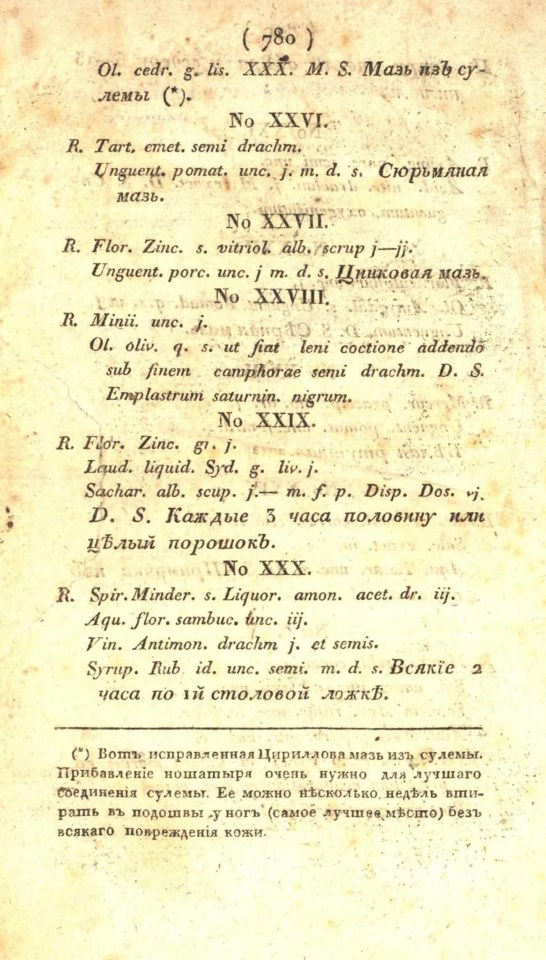 ( 780 )
Ol. cedr. g. lis. XXX. M. S. Мазь изъ су-
лемы (*).
No XXVI.
R. Tart. emet. semi drachm.
Unguent. pomat. unc. j. m. d. s. Сюрьмяная
мазь.
No XXVII.
R. Flor. Zinc. s. vitriol. alb. scrup j—jj.
Unguent. porc. unc. j m. d. s. Цинковая мазь.
No XXVIII.
R. Minii. unc. j.
Ol. oliv. q. s. ut fiat leni coctione addendo
sub finem camphorae semi drachm. D. S.
Emplastrum saturnin. nigrum.
No XXIX.
R. Flor. Zinc. gr. j.
Laud. liquid. Syd. g. liv. j.
Sachar. alb. scup. j.— m. f. p. Disp. Dos. vj.
D. S. Каждые 3 часа половину или
цѣлый порошокъ.
No XXX.
R. Spir. Minder. s. Liquor. amon. acet. dr. iij.
Aqu. flor. sambuc. unc. iij.
Vin. Antimon. drachm j. et semis.
Syrup. Rub id. unc. semi. m. d. s. Всякїе 2
часа по 1й столовой ложкѣ.
(*) Вотъ исправленная Цириллова мазь изъ сулемы.
Прибавленіе ношатыря очень нужно для лучшаго
соединенія сулемы. Ее можно нѣсколько недѣль вти-
рать въ подошвы у ногъ (самое лучшее мѣсто) безъ
всякаго поврежденія кожи.